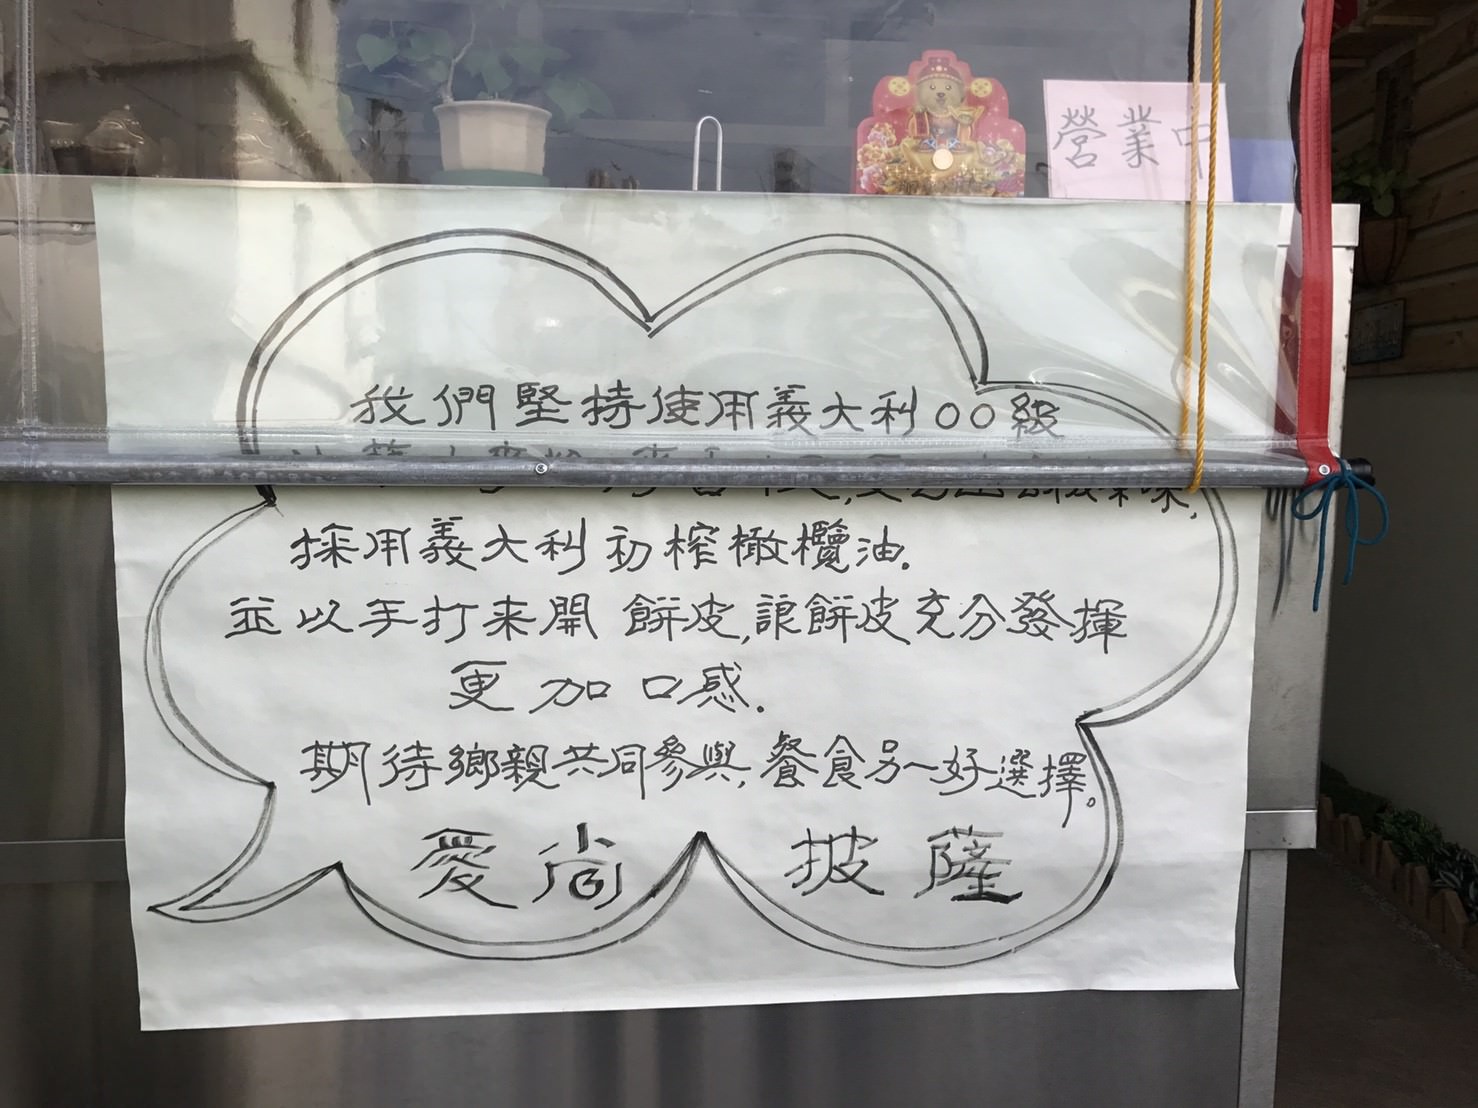 營業中
我們堅持使用義大利00級
採用義大利初榨橄欖油.
並以手打来開餅皮,讓餅皮充分發揮
更加口感.
期待鄉親共同參與,餐食另一好選擇。
愛尚 披薩